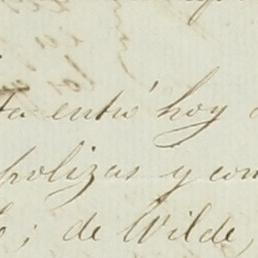 ta entró hoy
polizas y con
; de Wilde,